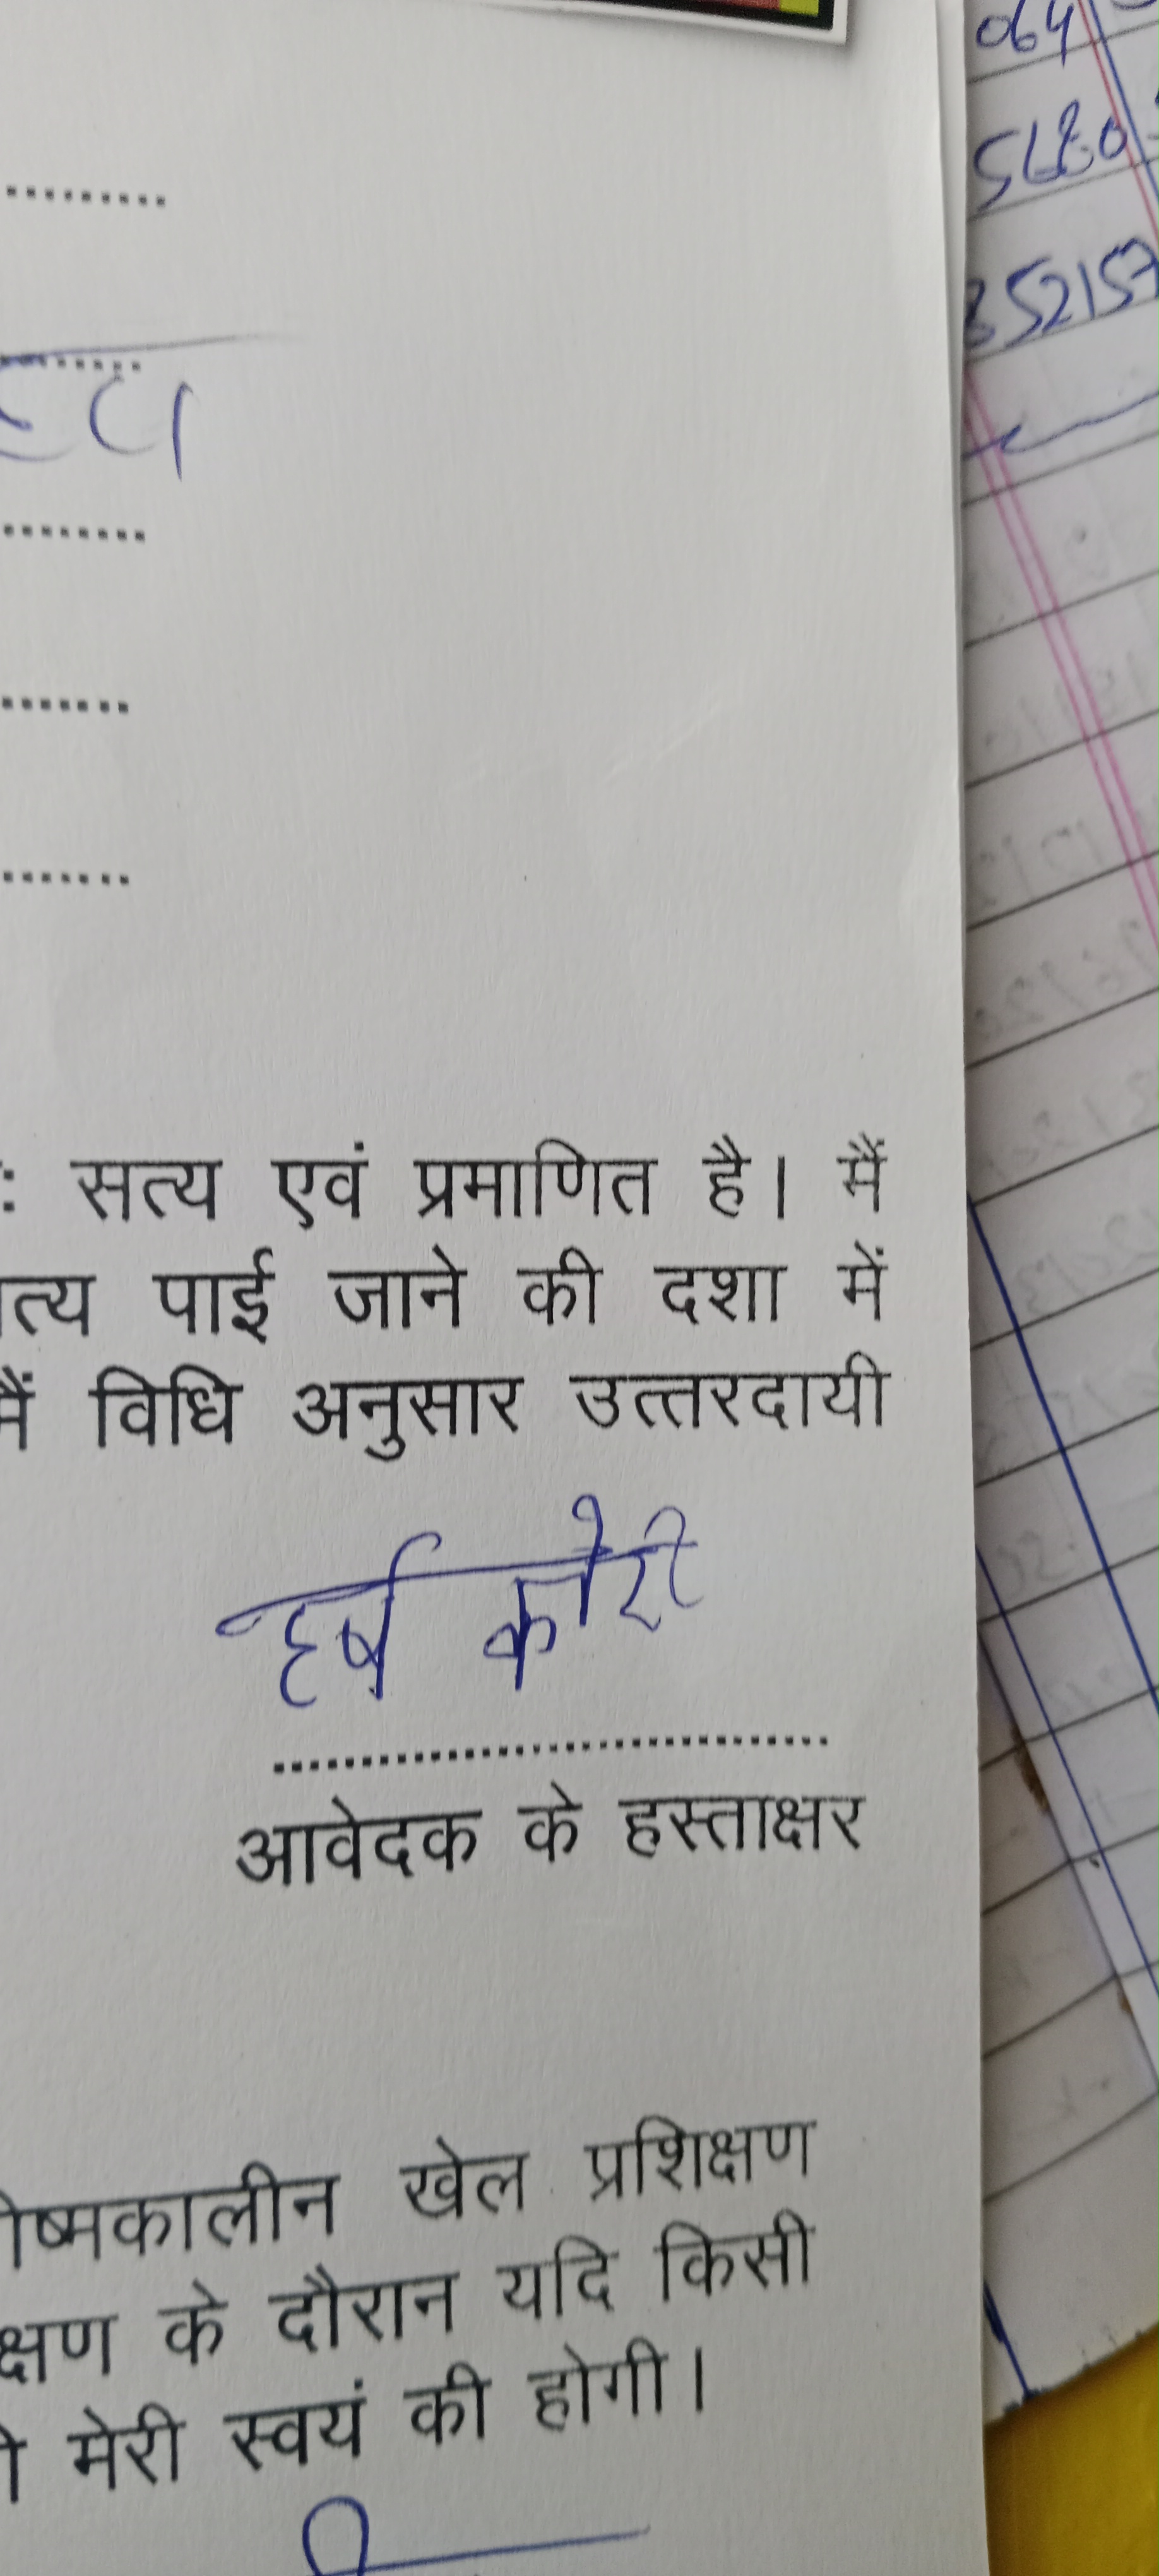 064
5680
352157
सत्य एवं प्रमाणित है। मैं
पाई जाने की दशा में
विधि अनुसार उत्तरदायी
हर्ष कोरी
आवेदक के हस्ताक्षर
खेल प्रशिक्षण
के दौरान यदि किसी
मेरी स्वयं की होगी।